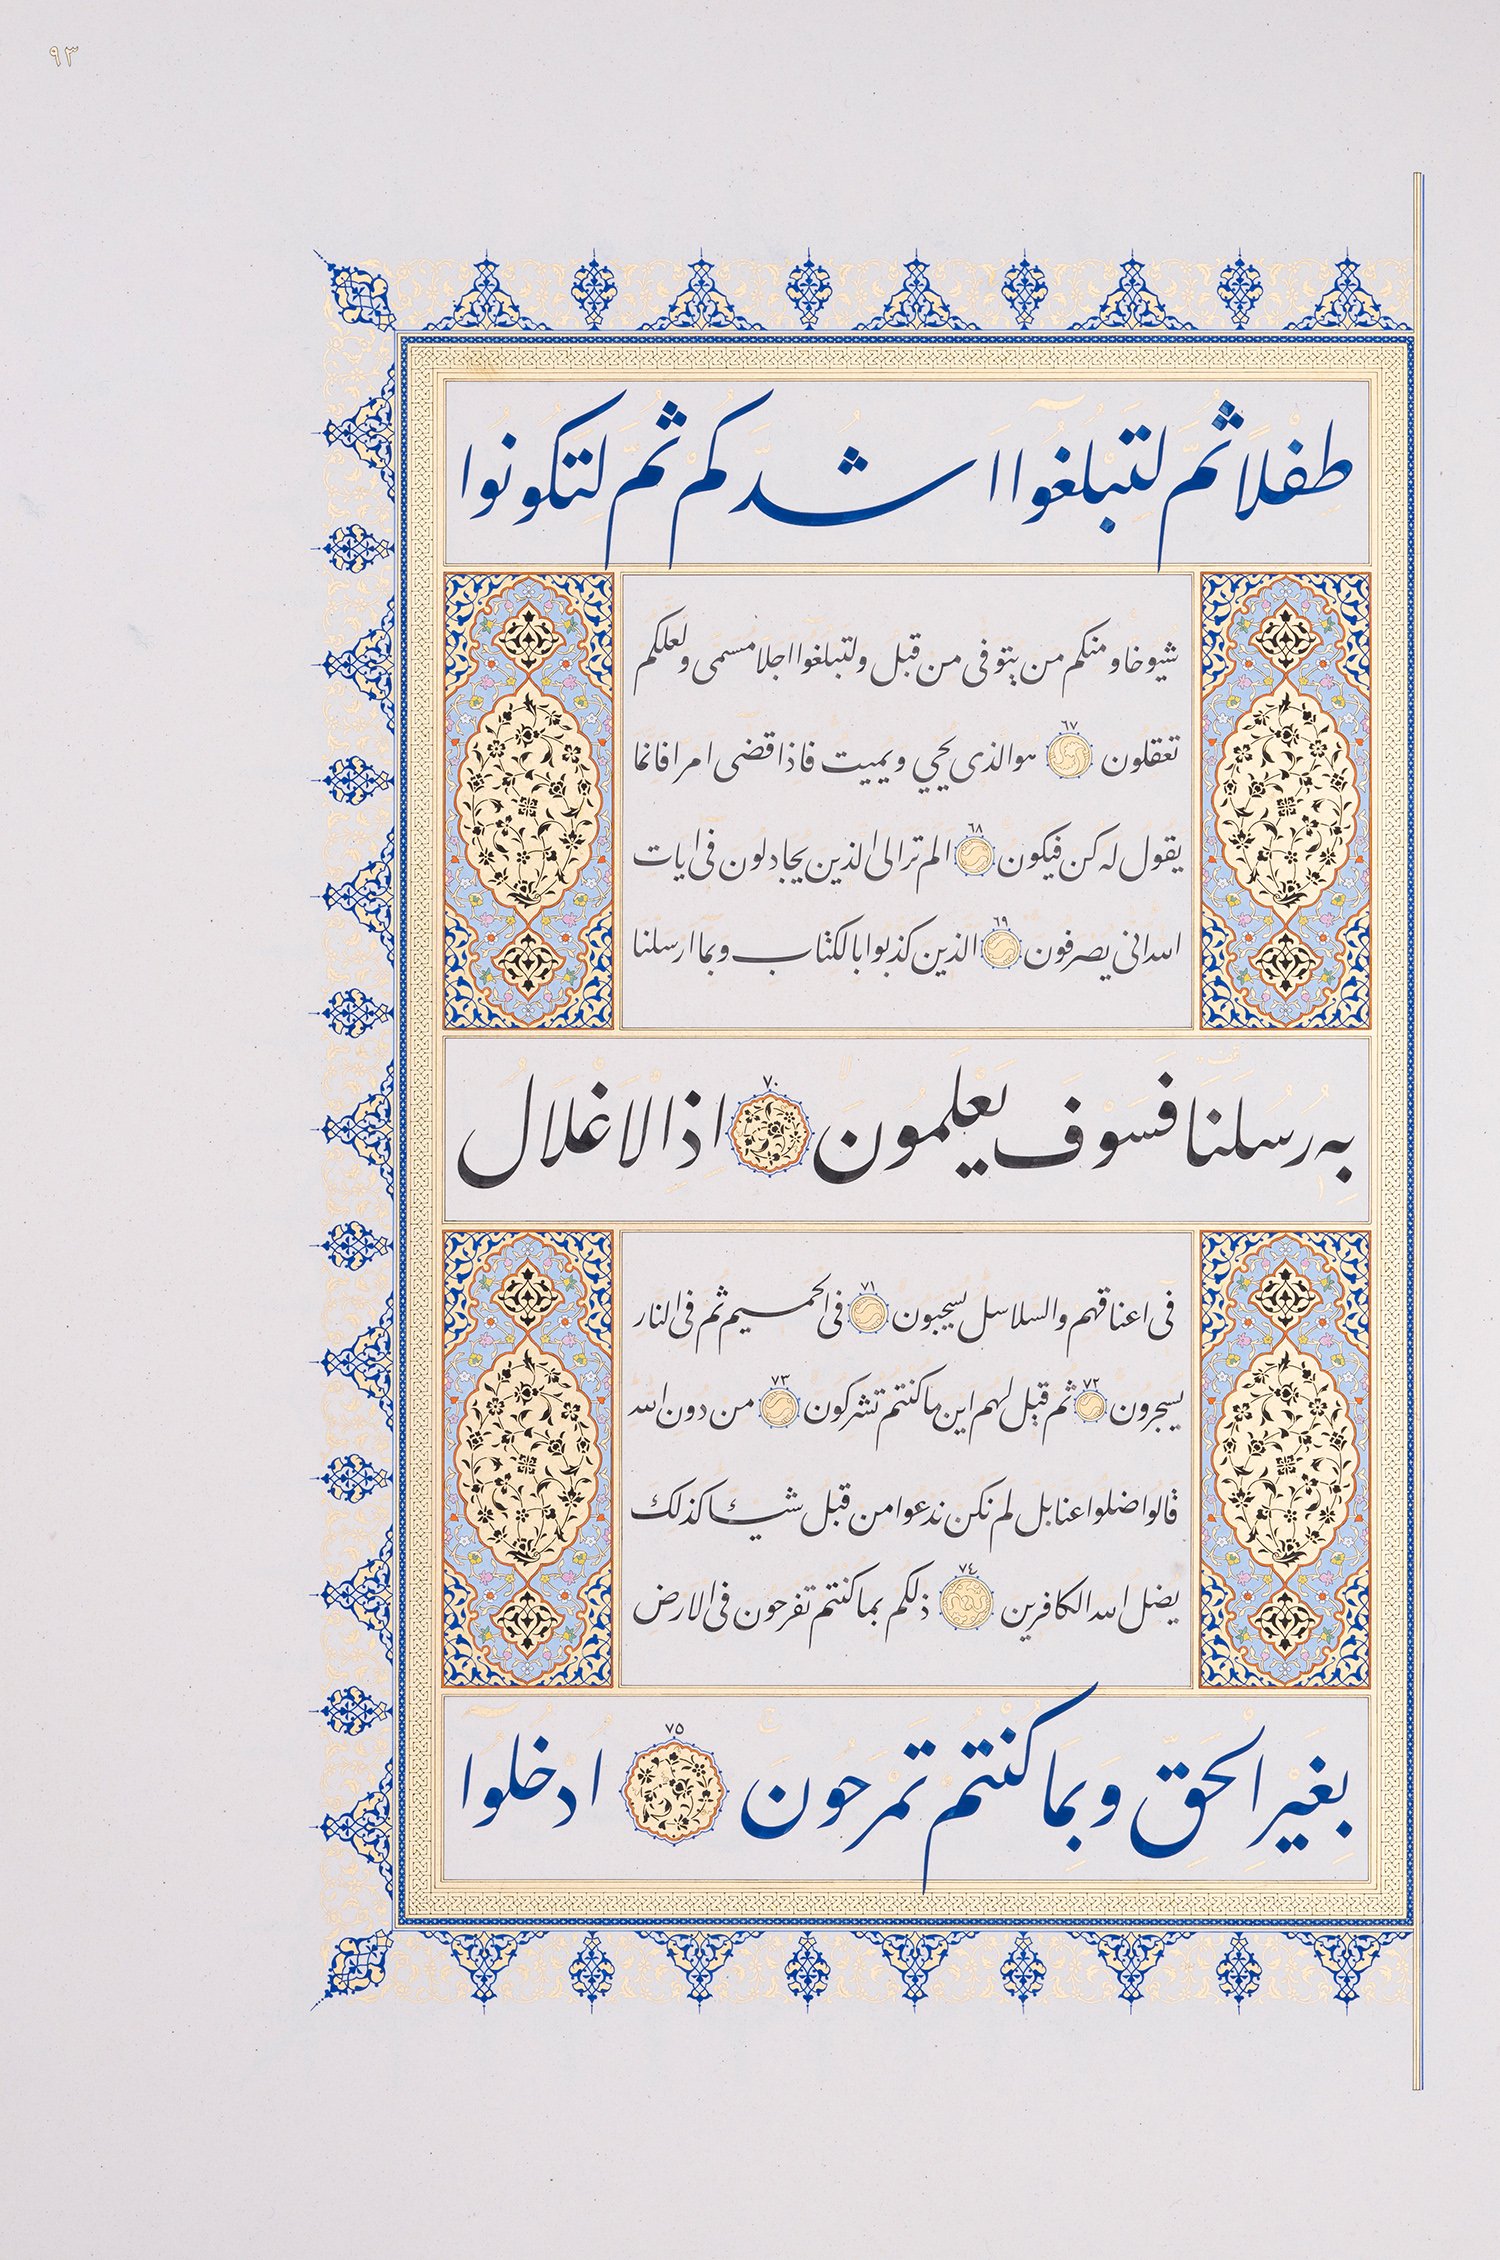 ٩٣
طِفْلًا ثُمَّ لِتَبْلُغُوٓا اَشُدَّكُمْ ثُمَّ لِتَكُونُوا
شيوخا ومنكم من يتوفى من قبل ولتبلغوا اجلا مسمى ولعلكم
تعقلون ٦٧ هو الذى يحيي ويميت فاذا قضى امرا فانما
يقول له كن فيكون ٦٨ الم تر الى الذين يجادلون فى ايات
الله انى يصرفون ٦٩ الذين كذبوا بالكتاب وبما ارسلنا
بِه رُسُلَنَا فَسَوْفَ يَعْلَمُونَ ٧٠ اِذِ الْاَغْلَالُ
فى اعناقهم والسلاسل يسحبون ٧١ فى الحميم ثم فى النار
يسجرون ٧٢ ثم قيل لهم اين ما كنتم تشركون ٧٣ من دون الله
قالوا ضلوا عنا بل لم نكن ندعوا من قبل شيئا كذلك
يضل الله الكافرين ٧٤ ذلكم بما كنتم تفرحون فى الارض
بِغَيْرِ الْحَقِّ وَبِمَا كُنْتُمْ تَمْرَحُونَ ٧٥ اُدْخُلُوٓا